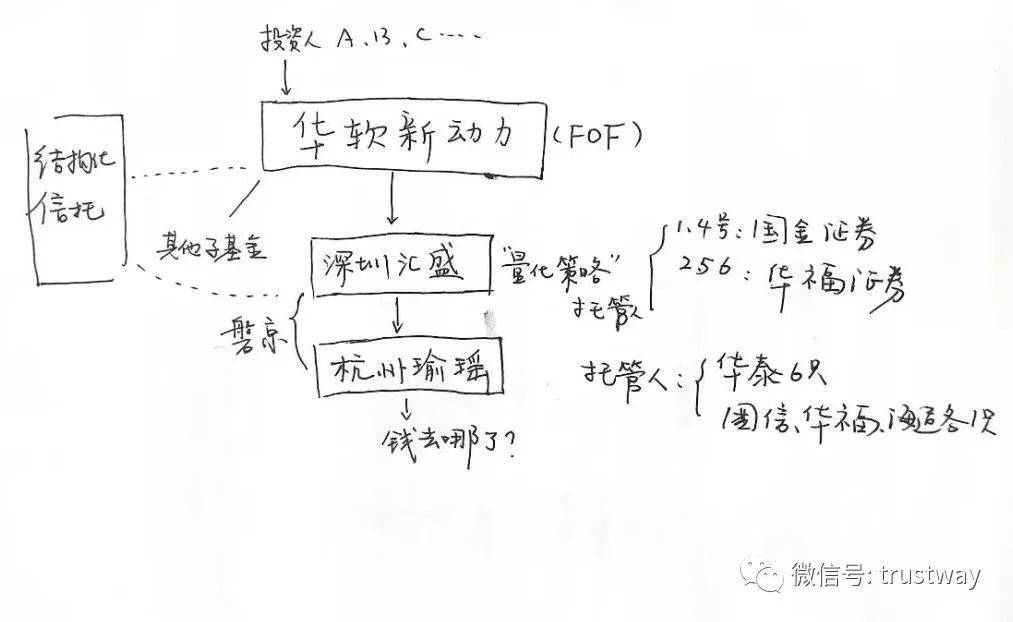 投资人 A、B、C……
华软新动力
(FOF)
结构化
信托
其他子基金
深圳汇盛
"量化策略"
托管人
1.4号:国金证券
256:华福证券
磐京
杭州瑜瑶
托管人:
华泰6只
国信、华福、海通各1只
钱去哪了?
微信号: trustway